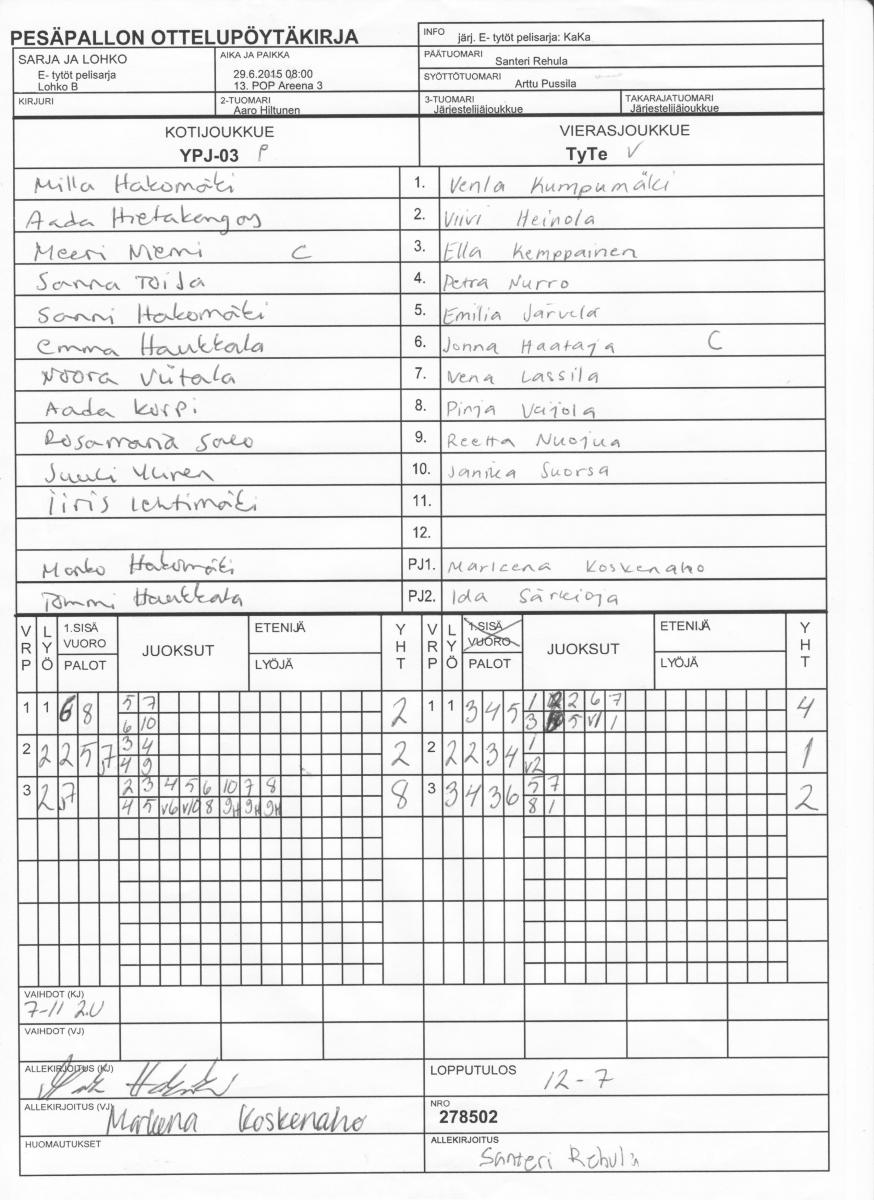 PESÄPALLON OTTELUPÖYTÄKIRJA
INFO järj. E- tytöt pelisarja: KaKa
SARJA JA LOHKO
E- tytöt pelisarja
Lohko B
AIKA JA PAIKKA
29.6.2015 08:00
13. POP Areena 3
PÄÄTUOMARI
Santeri Rehula
SYÖTTÖTUOMARI
Arttu Pussila
KIRJURI
2-TUOMARI
Aaro Hiltunen
3-TUOMARI
Järjestelijäjoukkue
TAKARAJATUOMARI
Järjestelijäjoukkue
KOTIJOUKKUE
YPJ-03 P
VIERASJOUKKUE
TyTe V
Milla Hakomäki 1. Venla Kumpumäki
Aada Hietakangas 2. Viivi Heinola
Meeri Niemi C 3. Ella Kemppainen
Sanna Toija 4. Petra Nurro
Sanni Hakomäki 5. Emilia Järvelä
Emma Haukkala 6. Jonna Haataja C
Noora Viitala 7. Nena Lassila
Aada Korpi 8. Pinja Vaijola
Rosamaria Salo 9. Reetta Nuojua
Juuli 10. Janika Suorsa
Iiris Lehtimäki 11.
12.
Marko Hakomäki PJ1. Marleena Koskenaho
Tommi Haukkala PJ2. Ida Särkioja
VRP LYÖ 1.SISÄ VUORO PALOT JUOKSUT ETENIJÄ LYÖJÄ YHT VRP LYÖ 1.SISÄ VUORO PALOT JUOKSUT ETENIJÄ LYÖJÄ YHT
1 1 6 8 5 7 2 1 1 3 4 5 1 2 2 6 7 4
6 10 3 5 V1 1
2 2 2 5 J7 3 4 2 2 2 2 3 4 1 1
4 9 V2
3 2 J7 2 3 4 5 6 10 7 8 8 3 3 4 3 6 5 7 2
4 5 V6 V10 8 9H 9H 9H 8 1
VAIHDOT (KJ)
7-11 2.U
VAIHDOT (VJ)
ALLEKIRJOITUS (KJ)
LOPPUTULOS 12-7
ALLEKIRJOITUS (VJ) Marleena Koskenaho
NRO
278502
HUOMAUTUKSET
ALLEKIRJOITUS
Santeri Rehula